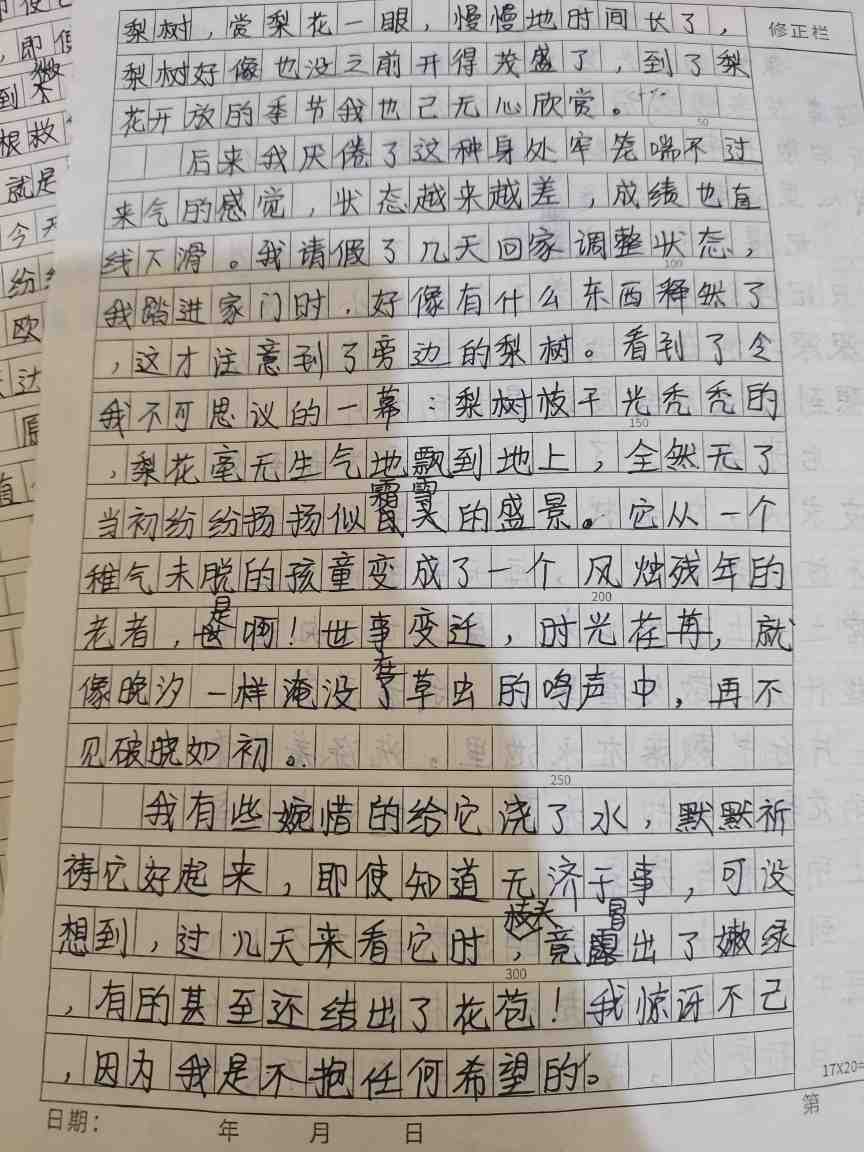 梨树，赏梨花一眼，慢慢地时间长了，
修正栏
梨树好像也没之前开得茂盛了，到了梨
花开放的季节我也已无心欣赏。
50
后来我厌倦了这种身处牢笼喘不过
来气的感觉，状态越来越差，成绩也直
线下滑。我请假了几天回家调整状态，
100
我踏进家门时，好像有什么东西释然了
，这才注意到了旁边的梨树。看到了令
我不可思议的一幕：梨树枝干光秃秃的
150
，梨花毫无生气地飘到地上，全然无了
霜雪
当初纷纷扬扬似的盛景。它从一个
稚气未脱的孩童变成了一个风烛残年的
200
老者，是啊！世事变迁，时光荏苒，就
像晚汐一样淹没在草虫的鸣声中，再不
见破晓如初。
250
我有些婉惜的给它浇了水，默默祈
祷它好起来，即使知道无济于事，可没
枝头 冒
想到，过几天来看它时，竟出了嫩绿
300
，有的甚至还结出了花苞！我惊讶不已
，因为我是不抱任何希望的。
17X20=
日期： 年 月 日
第
即使
，即使
到
根救
就是
今天
纷纷
欧
达